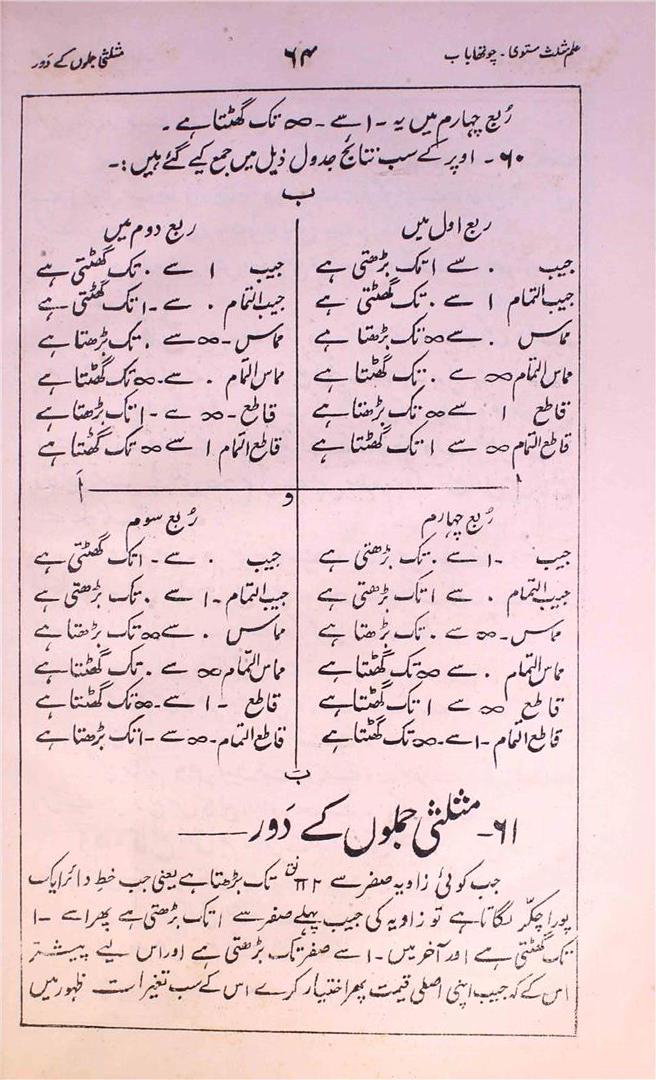 علم مثلث مستوی - چوتھا باب ۶۴ مثلثی جملوں کے دَور
رُبع چہارم میں یہ - ۱ سے - ∞ تک گھٹتا ہے -
۶۰ - اوپر کے سب نتائج جدول ذیل میں جمع کیے گئے ہیں :-
ب
ربع اول میں
جیب ۰ سے ۱ تک بڑھتی ہے
جیب التمام ۱ سے ۰ تک گھٹتی ہے
مماس ۰ سے ∞ تک بڑھتا ہے
مماس التمام ∞ سے ۰ تک گھٹتا ہے
قاطع ۱ سے ∞ تک بڑھتا ہے
قاطع التمام ∞ سے ۱ تک گھٹتا ہے
ربع دوم میں
جیب ۱ سے ۰ تک گھٹتی ہے
جیب التمام ۰ سے - ۱ تک گھٹتی ہے
مماس - ∞ سے ۰ تک بڑھتا ہے
مماس التمام ۰ سے - ∞ تک گھٹتا ہے
قاطع - ∞ سے - ۱ تک بڑھتا ہے
قاطع التمام ۱ سے ∞ تک گھٹتا ہے
ا و اَ
رُبع چہارم
جیب - ۱ سے ۰ تک بڑھتی ہے
جیب التمام ۰ سے ۱ تک بڑھتی ہے
مماس - ∞ سے ۰ تک بڑھتا ہے
مماس التمام ۰ سے ∞ تک گھٹتا ہے
قاطع ∞ سے ۱ تک گھٹتا ہے
قاطع التمام - ۱ سے - ∞ تک گھٹتا ہے
رُبع سوم
جیب ۰ سے - ۱ تک گھٹتی ہے
جیب التمام - ۱ سے ۰ تک بڑھتی ہے
مماس ۰ سے ∞ تک بڑھتا ہے
مماس التمام ∞ سے ۰ تک گھٹتا ہے
قاطع - ۱ سے - ∞ تک گھٹتا ہے
قاطع التمام - ∞ سے - ۱ تک بڑھتا ہے
بَ
۶۱ - مثلثی جملوں کے دَور
جب کوئی زاویہ صفر سے ۲π تک بڑھتا ہے یعنی جب خط دائر ایک
پورا چکّر لگاتا ہے تو زاویہ کی جیب پہلے صفر سے ۱ تک بڑھتی ہے پھر ۱ سے - ۱
تک گھٹتی ہے اور آخر میں - ۱ سے صفر تک بڑھتی ہے اور اس لیے پیشتر
اس کے کہ جیب اپنی اصلی قیمت پھر اختیار کرے اس کے سب تغیرات ظہور میں